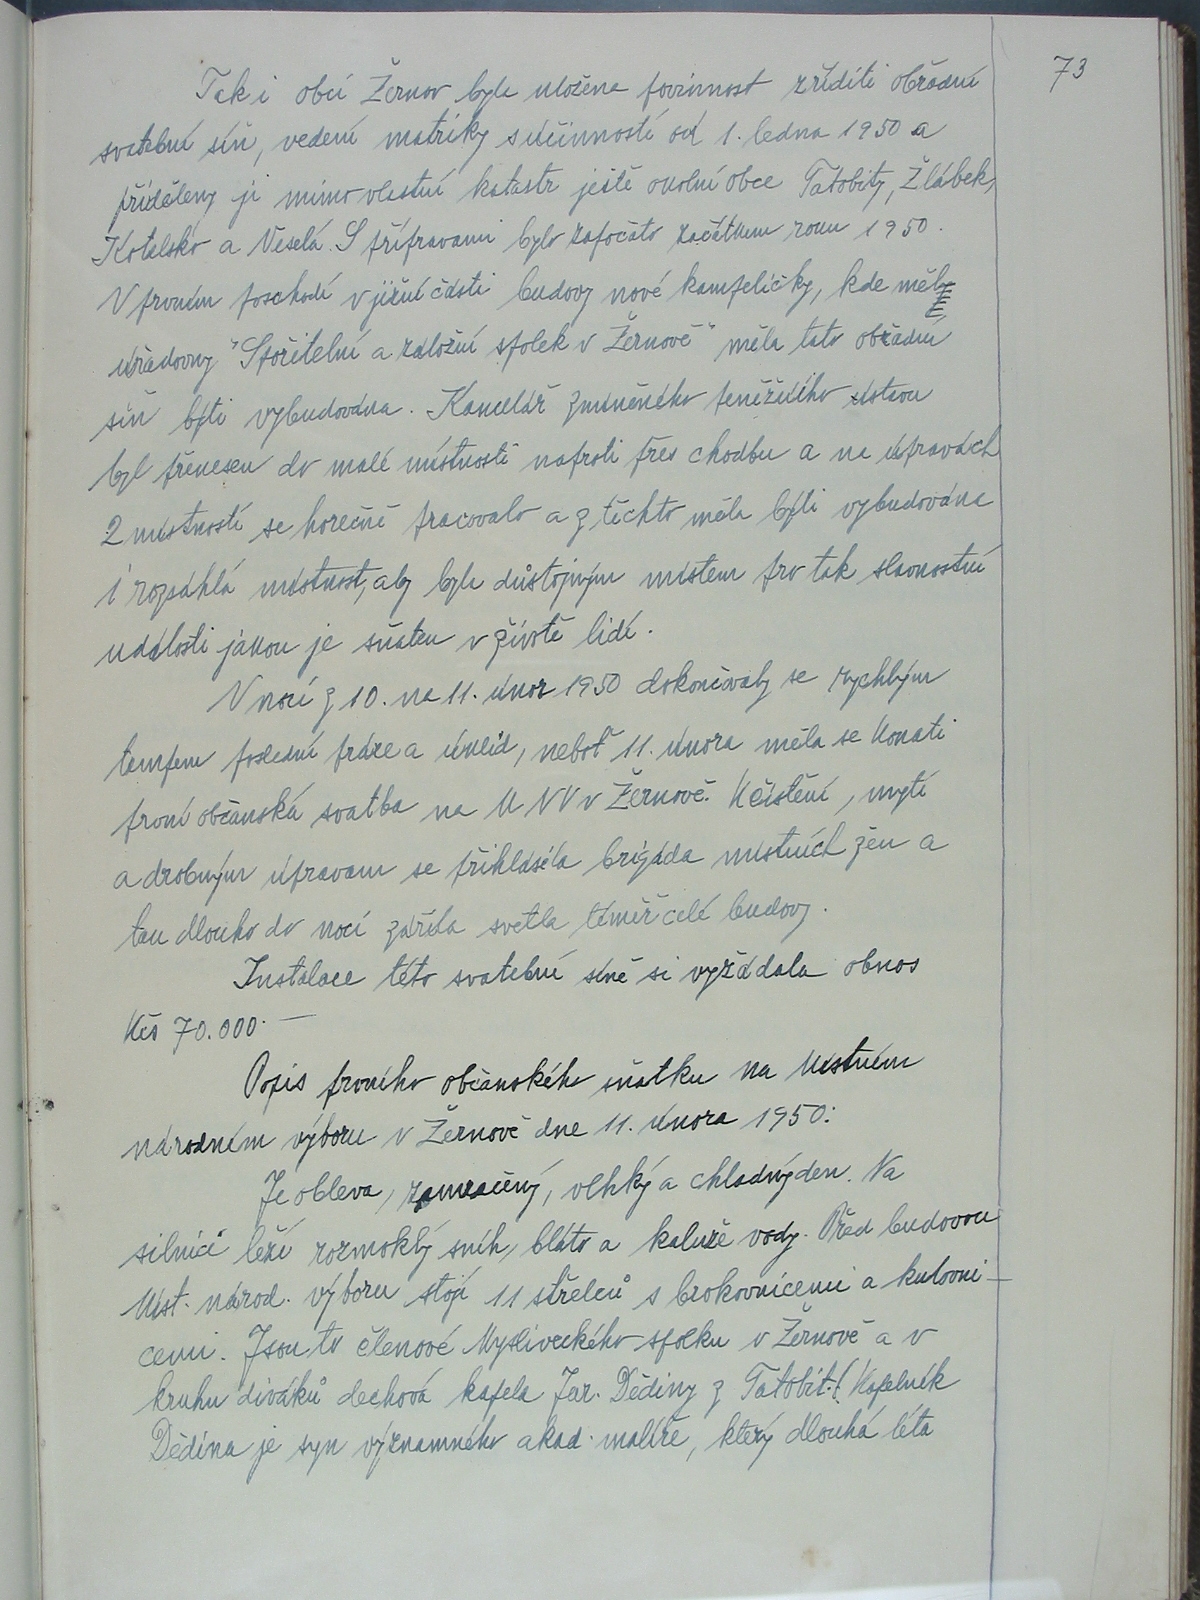 73
Tak i obci Žernov byla uložena povinnost zříditi obřadní
svatební síň, vedení matriky s účinností od 1. ledna 1950 a
přiděleny jí mimo vlastní katastr ještě okolní obce Tatobity, Žlábek,
Kotelsko a Veselá. S přípravami bylo započato začátkem roku 1950.
V prvním poschodí v jižní části budovy nové kampeličky, kde měly
úřadovny "Spořitelní a záložní spolek v Žernově" měla tato obřadní
síň býti vybudována. Kancelář zmíněného peněžního ústavu
byl přenesen do malé místnosti naproti přes chodbu a na úpravách
2 místností se horečně pracovalo a z těchto měla býti vybudována
1 rozsáhlá místnost, aby byla důstojným místem pro tak slavnostní
události jakou je sňatek v životě lidí.
V noci z 10. na 11. únor 1950 dokončovaly se rychlým
tempem poslední práce a úklid, neboť 11. února měla se konati
první občanská svatba na MNV v Žernově. K čistění, mytí
a drobným úpravam se přihlásila brigáda místních žen a
tak dlouho do noci zářila světla téměř celé budovy.
Instalace této svatební síně si vyžádala obnos
Kčs 70.000.—
Popis prvního občanského sňatku na Místním
národním výboru v Žernově dne 11. února 1950:
Je obleva, zamračený, vlhký a chladný den. Na
silnici leží rozmoklý sníh, bláto a kaluže vody. Před budovou
Míst. národ. výboru stojí 11 střelců s brokovnicemi a kulovni-
cemi. Jsou to členové Mysliveckého spolku v Žernově a v
kruhu diváků dechová kapela Jar. Dědiny z Tatobit. (Kapelník
Dědina je syn významného akad. malíře, který dlouhá léta